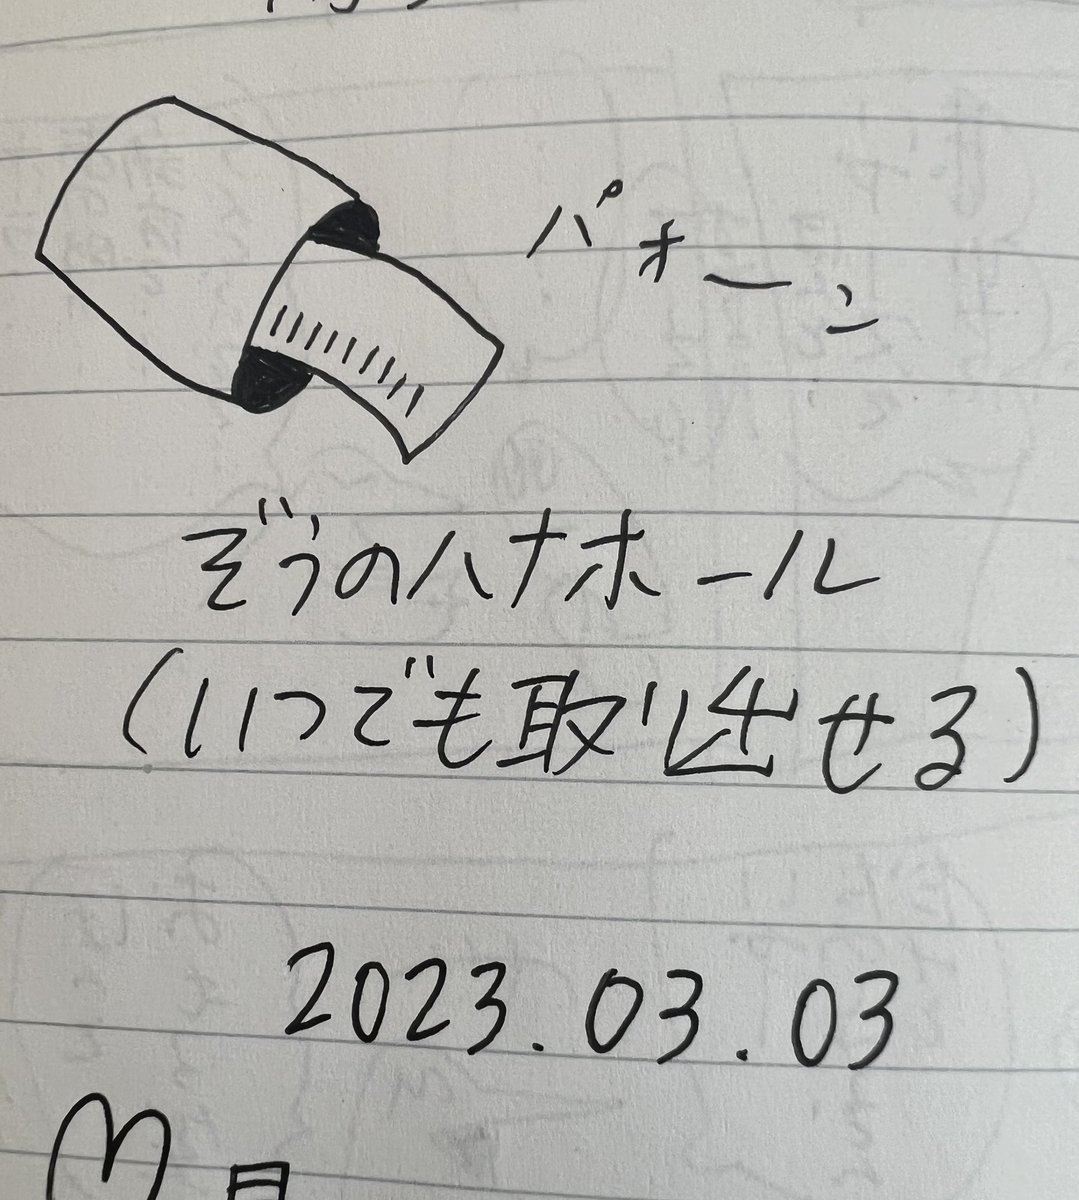 パオーン
ぞうのハナホール
(いつでも取り出せる)
2023.03.03